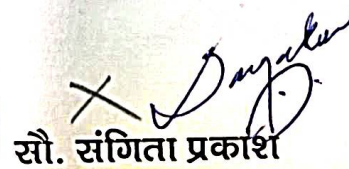 सौ. संगिता प्रकाश